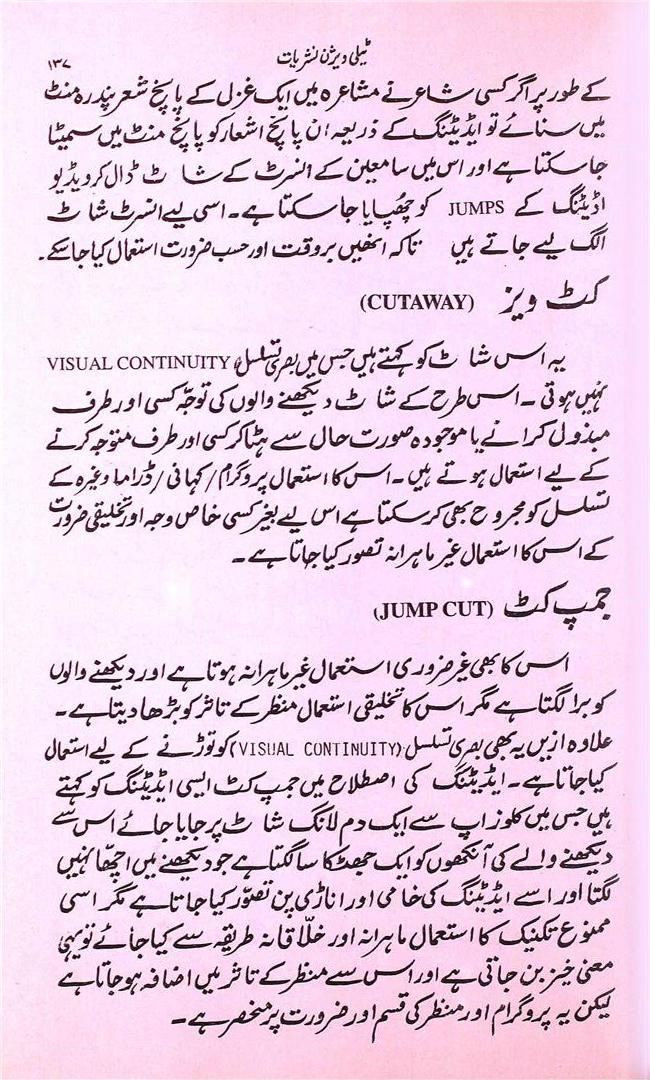 ٹیلی ویژن نشریات
۱۳۷
کے طور پر اگر کسی شاعر نے مشاعرہ میں ایک غزل کے پانچ شعر پندرہ منٹ
میں سنائے تو ایڈیٹنگ کے ذریعہ ان پانچ اشعار کو پانچ منٹ میں سمیٹا
جا سکتا ہے اور اس میں سامعین کے انسرٹ کے شاٹ ڈال کر ویڈیو
اڈیٹنگ کے JUMPS کو چھُپایا جا سکتا ہے۔ اسی لیے انسرٹ شاٹ
الگ لیے جاتے ہیں تاکہ انھیں بروقت اور حسب ضرورت استعمال کیا جا سکے۔
کٹ ویز (CUTAWAY)
یہ اس شاٹ کو کہتے ہیں جس میں بصری تسلسل VISUAL CONTINUITY
نہیں ہوتی۔ اس طرح کے شاٹ دیکھنے والوں کی توجّہ کسی اور طرف
مبذول کرانے یا موجودہ صورت حال سے ہٹا کر کسی اور طرف متوجہ کرنے
کے لیے استعمال ہوتے ہیں۔ اس کا استعمال پروگرام / کہانی / ڈراما وغیرہ کے
تسلسل کو مجروح بھی کر سکتا ہے اس لیے بغیر کسی خاص وجہ اور تخلیقی ضرورت
کے اس کا استعمال غیر ماہرانہ تصور کیا جاتا ہے۔
جمپ کٹ (JUMP CUT)
اس کا بھی غیر ضروری استعمال غیر ماہرانہ ہوتا ہے اور دیکھنے والوں
کو برا لگتا ہے مگر اس کا تخلیقی استعمال منظر کے تاثر کو بڑھا دیتا ہے۔
علاوہ ازیں یہ بھی بصری تسلسل (VISUAL CONTINUITY) کو توڑنے کے لیے استعمال
کیا جاتا ہے۔ ایڈیٹنگ کی اصطلاح میں جمپ کٹ ایسی ایڈیٹنگ کو کہتے
ہیں جس میں کلوز اپ سے ایک دم لانگ شاٹ پر جایا جائے اس سے
دیکھنے والے کی آنکھوں کو ایک جھٹکا سا لگتا ہے جو دیکھنے میں اچھّا نہیں
لگتا اور اسے ایڈیٹنگ کی خامی اور اناڑی پن تصوّر کیا جاتا ہے مگر اسی
ممنوع تکنیک کا استعمال ماہرانہ اور خلّاقانہ طریقہ سے کیا جائے تو یہی
معنی خیز بن جاتی ہے اور اس سے منظر کے تاثر میں اضافہ ہو جاتا ہے
لیکن یہ پروگرام اور منظر کی قسم اور ضرورت پر منحصر ہے۔